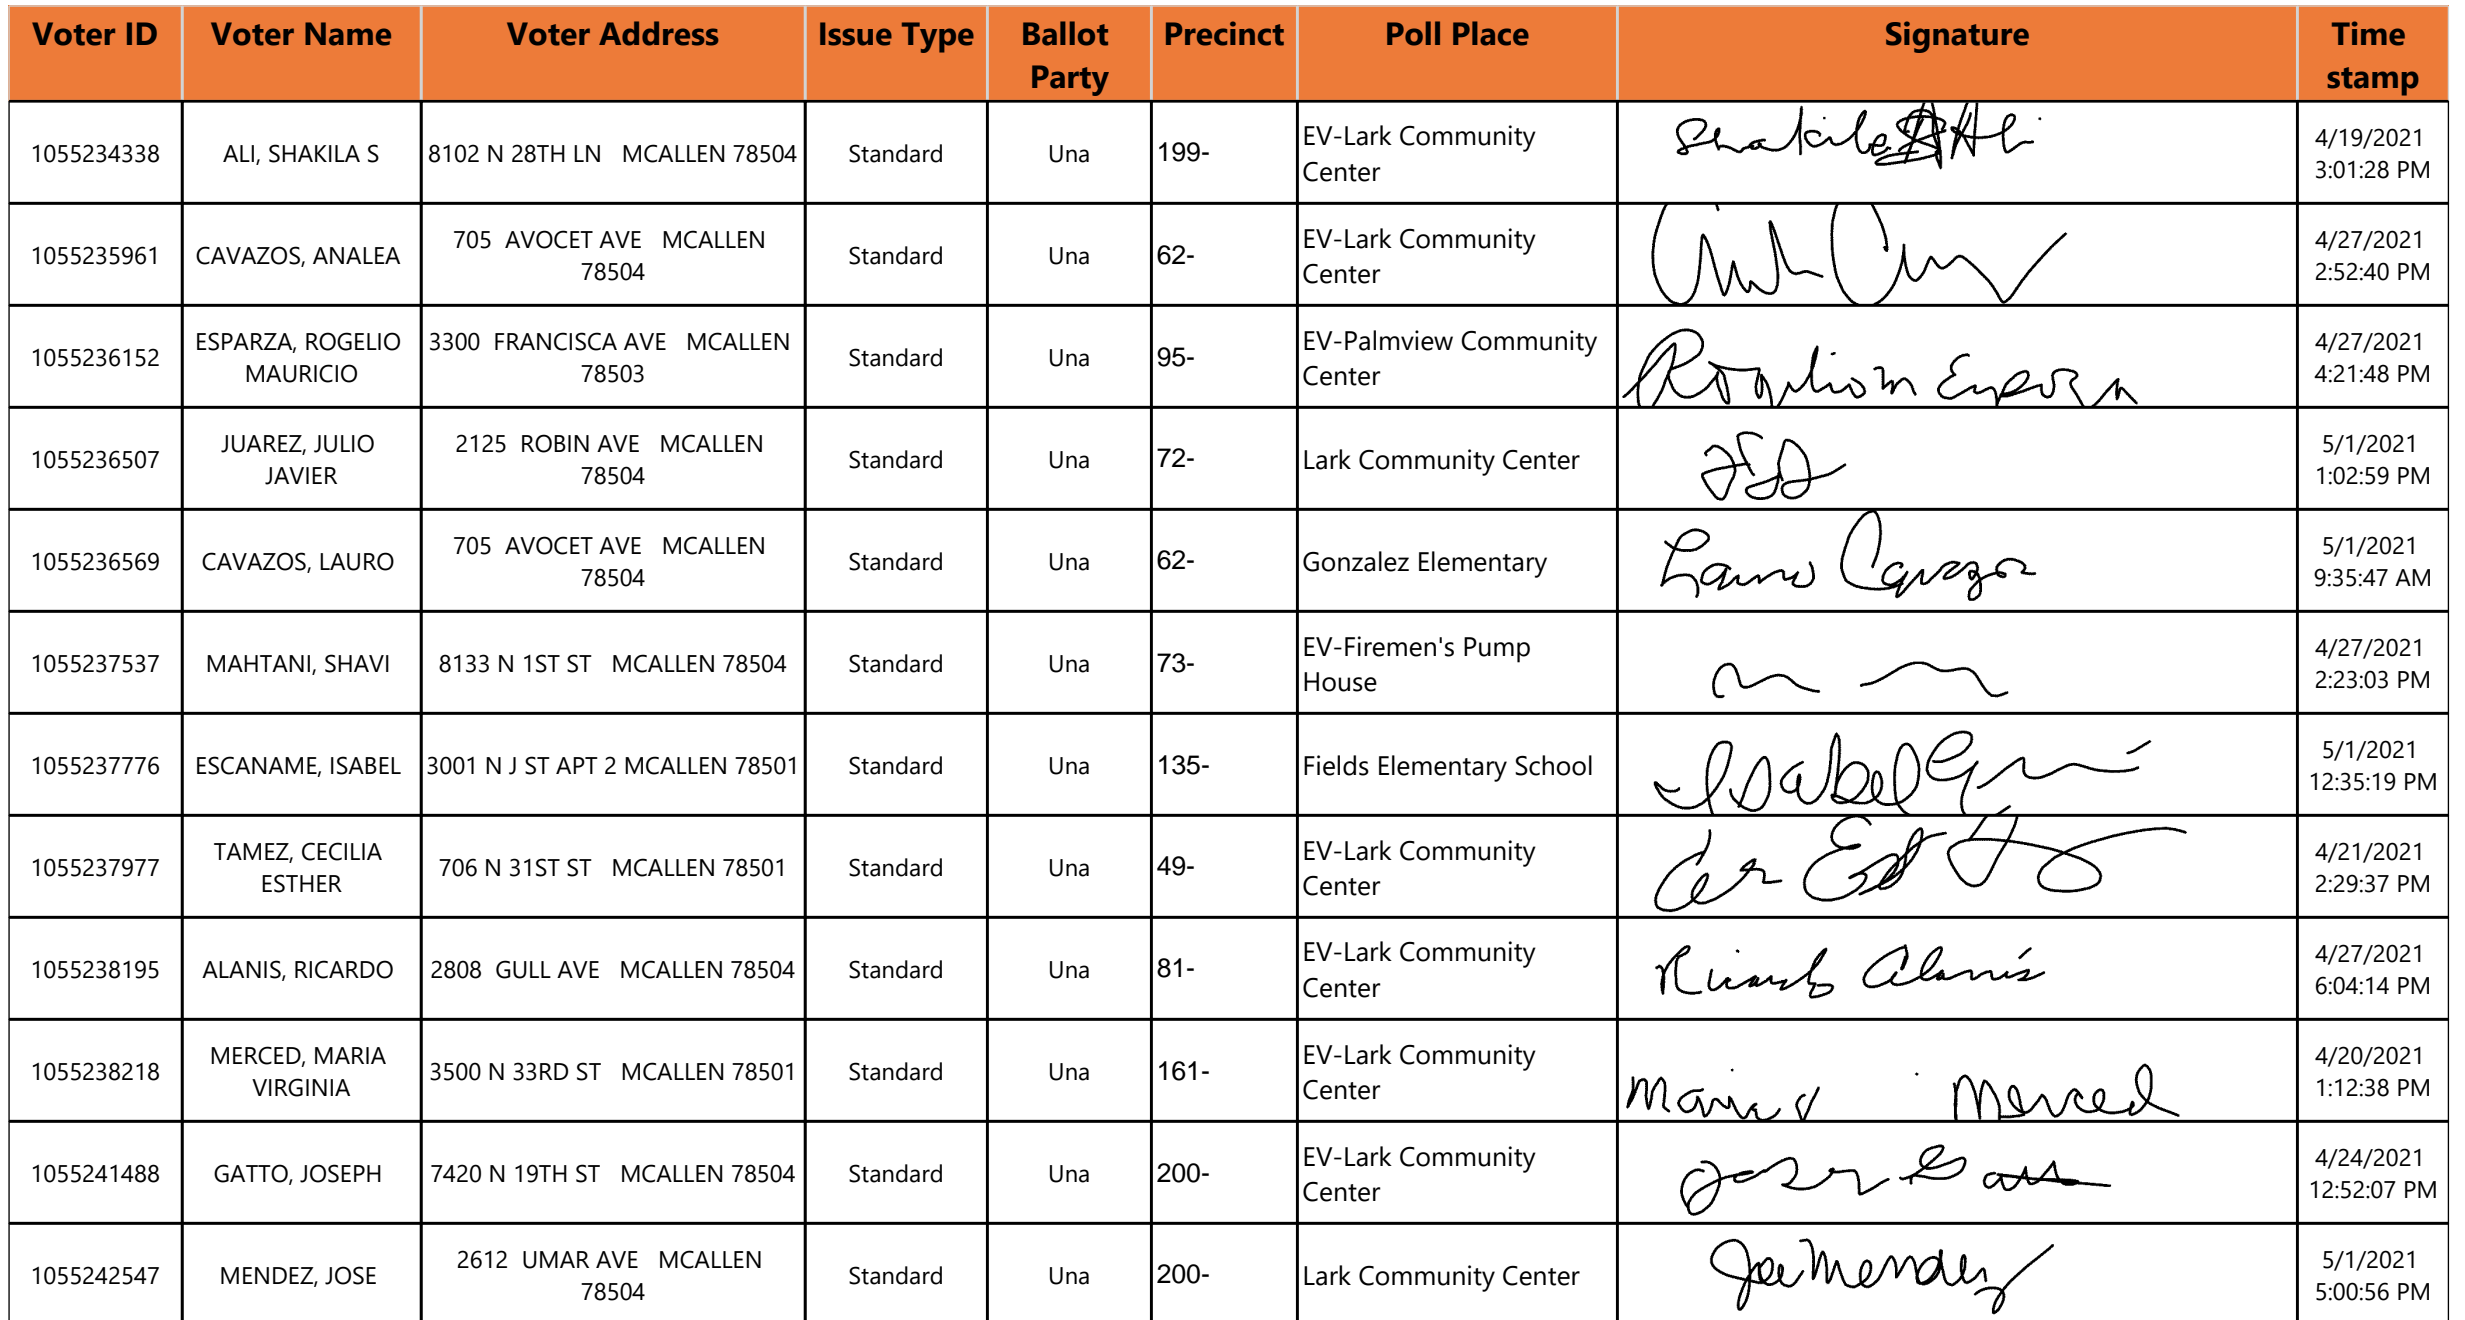 Voter ID Voter Name Voter Address Issue Type Ballot Party Precinct Poll Place Signature Time stamp
1055234338 ALI, SHAKILA S 8102 N 28TH LN MCALLEN 78504 Standard Una 199- EV-Lark Community Center Shakila S Ali 4/19/2021 3:01:28 PM
1055235961 CAVAZOS, ANALEA 705 AVOCET AVE MCALLEN 78504 Standard Una 62- EV-Lark Community Center 4/27/2021 2:52:40 PM
1055236152 ESPARZA, ROGELIO MAURICIO 3300 FRANCISCA AVE MCALLEN 78503 Standard Una 95- EV-Palmview Community Center Rogelio m Esparza 4/27/2021 4:21:48 PM
1055236507 JUAREZ, JULIO JAVIER 2125 ROBIN AVE MCALLEN 78504 Standard Una 72- Lark Community Center 5/1/2021 1:02:59 PM
1055236569 CAVAZOS, LAURO 705 AVOCET AVE MCALLEN 78504 Standard Una 62- Gonzalez Elementary Lauro Cavazos 5/1/2021 9:35:47 AM
1055237537 MAHTANI, SHAVI 8133 N 1ST ST MCALLEN 78504 Standard Una 73- EV-Firemen's Pump House 4/27/2021 2:23:03 PM
1055237776 ESCANAME, ISABEL 3001 N J ST APT 2 MCALLEN 78501 Standard Una 135- Fields Elementary School Isabel 5/1/2021 12:35:19 PM
1055237977 TAMEZ, CECILIA ESTHER 706 N 31ST ST MCALLEN 78501 Standard Una 49- EV-Lark Community Center 4/21/2021 2:29:37 PM
1055238195 ALANIS, RICARDO 2808 GULL AVE MCALLEN 78504 Standard Una 81- EV-Lark Community Center Ricardo Alanis 4/27/2021 6:04:14 PM
1055238218 MERCED, MARIA VIRGINIA 3500 N 33RD ST MCALLEN 78501 Standard Una 161- EV-Lark Community Center Maria V Merced 4/20/2021 1:12:38 PM
1055241488 GATTO, JOSEPH 7420 N 19TH ST MCALLEN 78504 Standard Una 200- EV-Lark Community Center 4/24/2021 12:52:07 PM
1055242547 MENDEZ, JOSE 2612 UMAR AVE MCALLEN 78504 Standard Una 200- Lark Community Center Joe Mendez 5/1/2021 5:00:56 PM